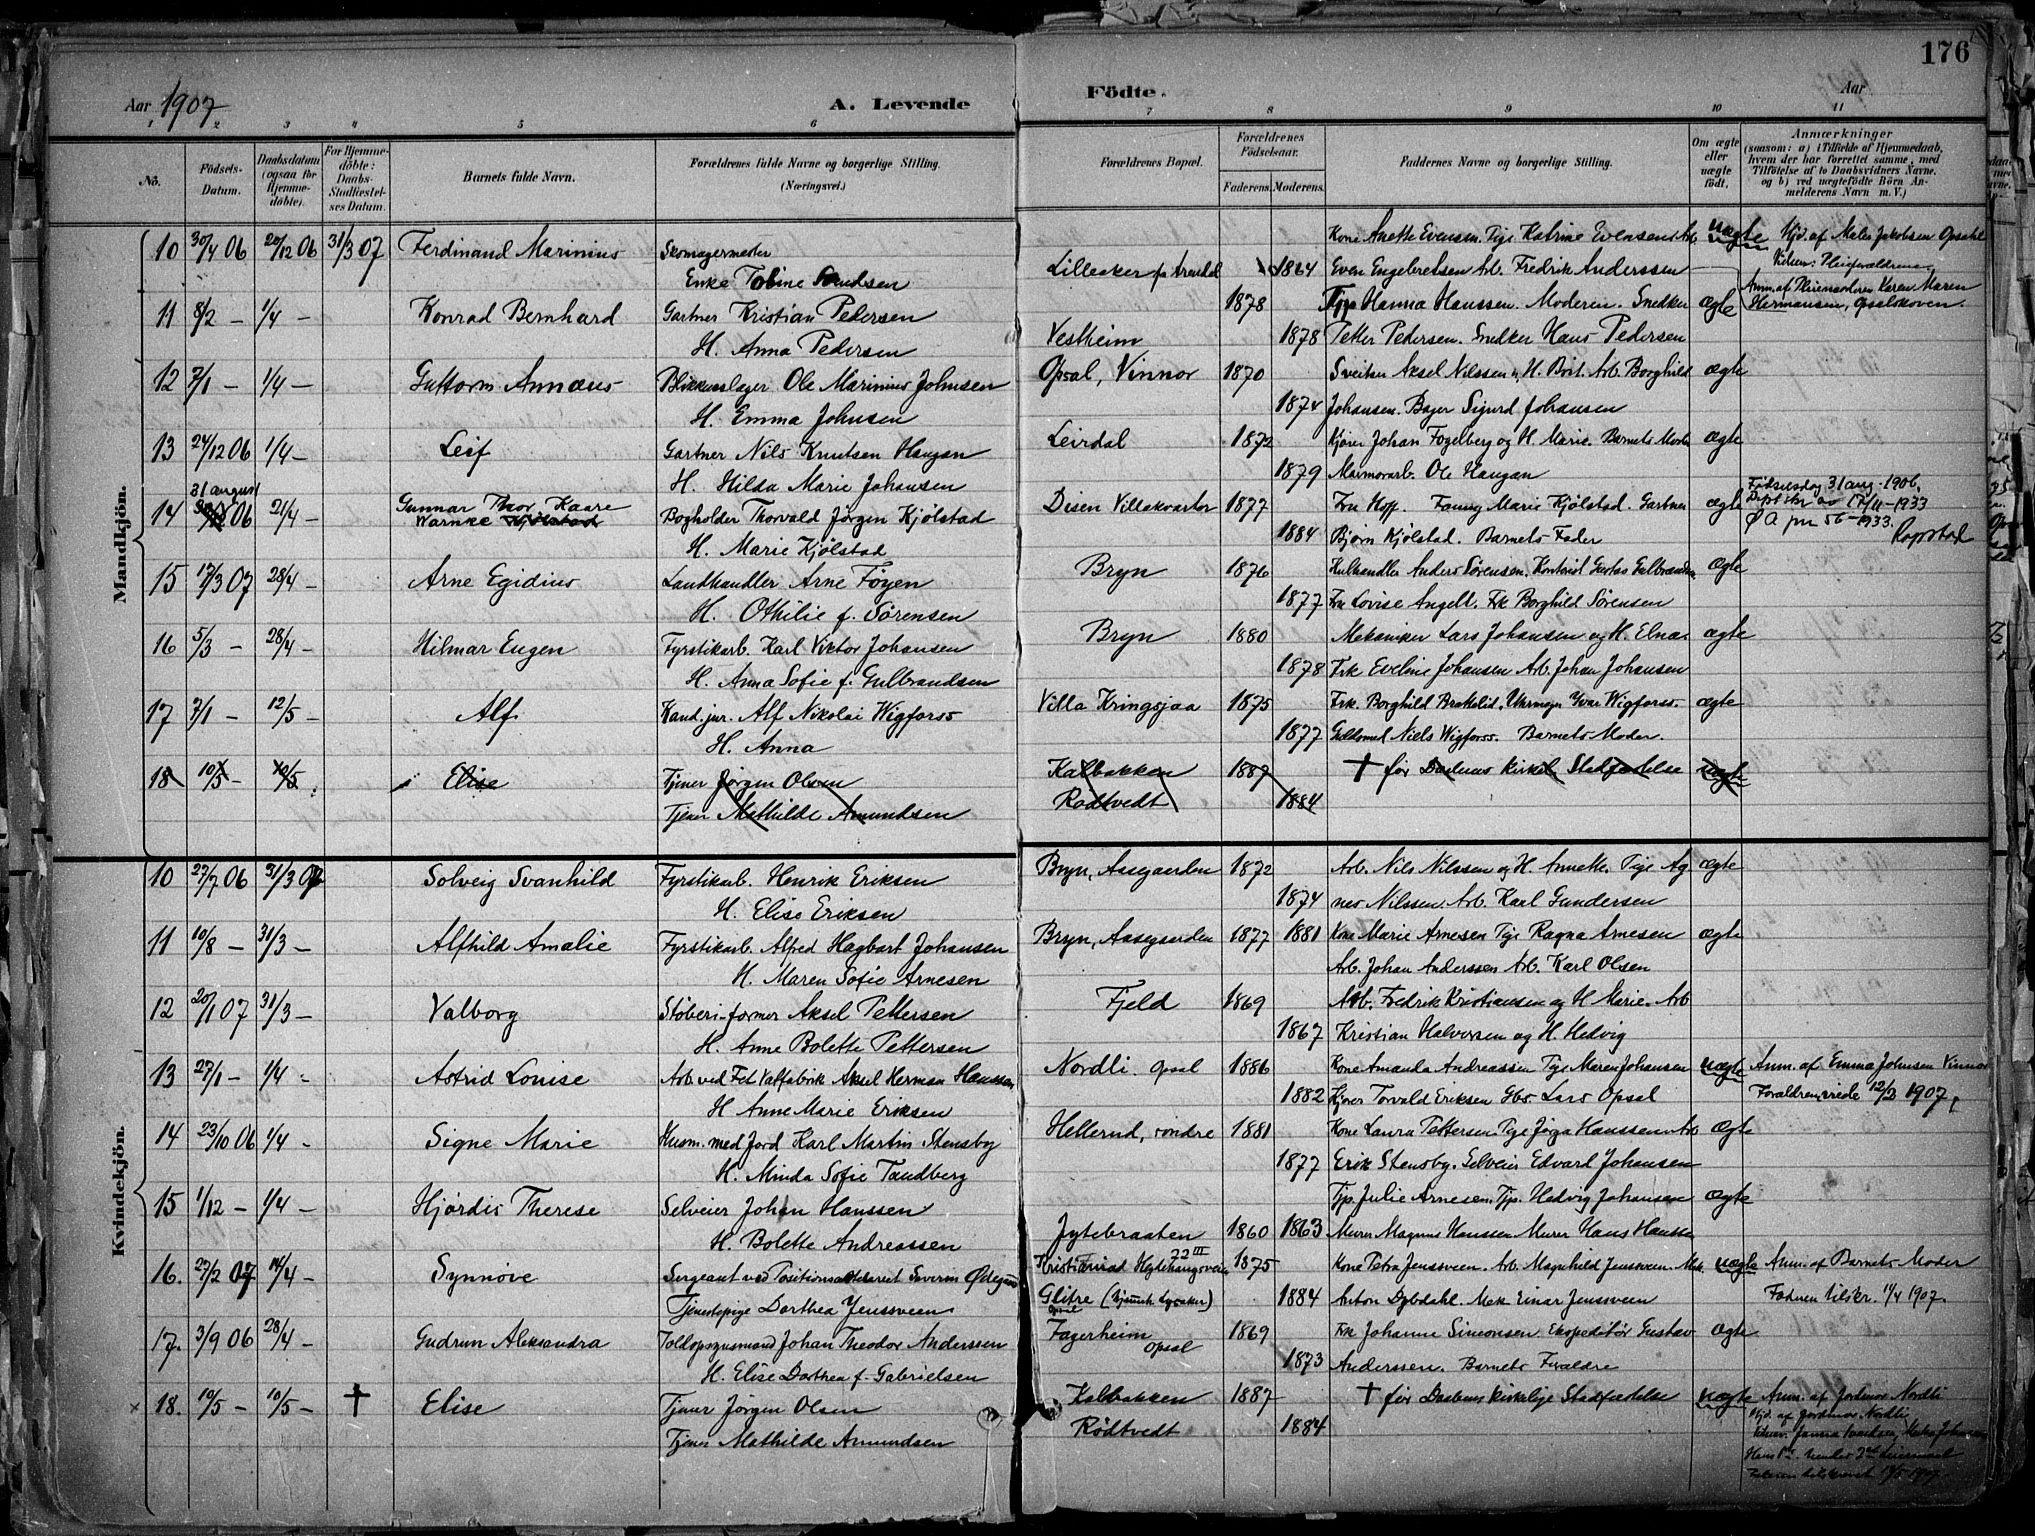 176
Aar 1907
A. Levende
Födte.
Aar
1 2 3 4 5 6 7 8 9 10 11
No.
Födsels-Datum.
Daabsdatum (ogsaa for Hjemme-döbte).
For Hjemme-döbte: Daabs-Stadfæstel-ses Datum.
Barnets fulde Navn.
Forældrenes fulde Navne og borgerlige Stilling.
(Næringsvei.)
Forældrenes Bopæl.
Forældrenes Födselsaar.
Faderens. Moderens.
Faddernes Navne og borgerlige Stilling.
Om ægte eller uægte födt.
Anmærkninger
(saasom: a) i Tilfælde af Hjemmedaab,
hvem der har forrettet samme, med
Tilföielse af to Daabsvidners Navne.
og b) ved uægtefödte Börn An-
melderens Navn m. V.)
Mandkjön.
10 30/4 06 20/12 06 31/3 07 Ferdinand Marinius Skomagermester
Enke Tobine Lilleaker pr Arendal 1864
Kone Anette Evensen. Pige Katrine Evensen Arb uægte
Even Engebretsen Arb. Fredrik Anderssen
Anm. af Pleiemoderen Karen Maren
Hermansen, Opsalskoven.
11 8/2 — 1/4 — Konrad Bernhard Gartner Kristian Pedersen 1878 Hanna Hanssen. Moderen. Snedker ægte
H. Anna Pedersen Vestheim 1878 Petter Pedersen. Snedker Hans Pedersen
12 7/1 — 1/4 — Guttorm Annæus Blikkenslager Ole Marinius Johnsen Opsal, Vinnor 1870 Sveitser Aksel Nilssen, H. Brit. Arb. Borghild ægte
H. Emma Johnsen 1874 Johansen. Bager Sigurd Johansen
13 24/12 06 1/4 — Leif Gartner Nils Knutsen Haugan Leirdal 1872 Kjører Johan Fogelberg og H. Marie. Barnets Moder ægte
H. Hilda Marie Johansen 1879 Marmorarb. Ole Haugan
31 august
14 06 21/4 — Gunnar Thor Kaare
Warnke Kjølstad Bogholder Thorvald Jørgen Kjølstad Disen Villakvarter 1877 Fru Hoff. Fanny Marie Kjølstad. Gartner ægte
H. Marie Kjølstad 1884 Bjørn Kjølstad. Barnets Fader
Fødselsdag 31 aug. 1906,
17/11-1933
Ø A jnr 56-1933.
Ropstad
15 17/3 07 28/4 — Arne Egidius Landhandler Arne Føyen Bryn 1876 Kulhandler Anders Sørensen. Kontorist Gustav Gulbrandsen ægte
H. Othilie f. Sørensen 1877 Fru Lovise Angell. Frk Borghild Sørensen
16 5/3 — 28/4 — Hilmar Eugen Fyrstikarb. Karl Viktor Johansen Bryn 1880 Mekaniker Lars Johansen og H. Elna. ægte
H. Anna Sofie f. Gulbrandsen 1878 Frk Eveline Johansen Arb. Johan Johansen
17 7/1 — 12/5 — Alf Kand. jur. Alf Nikolai Wigforss Villa Kringsjaa 1875 Frk. Borghild Brakelid. Uhrmager Yvar Wigforss. ægte
H. Anna 1877 Guldsmed Niels Wigforss. Barnets Moder.
18 10/5 — 10/5 Elise Tjener Jørgen Olsen Kalbakken 1887 † før Daabens kirkel. Stadfæstelse uægte
Tjener Mathilde Amundsen Rødtvedt 1884
Kvindekjön.
10 27/7 06 31/3 07 Solveig Svanhild Fyrstikarb. Henrik Eriksen Bryn, Aasegaarden 1872 Arb. Nils Nilssen og H. Annette. Pige Ag- ægte
H. Elise Eriksen 1874 nes Nilssen. Arb. Karl Gundersen
11 10/8 — 31/3 — Alfhild Amalie Fyrstikarb. Alfred Hagbart Johansen Bryn, Aasegaarden 1877 1881 Kone Marie Arnesen Pige Ragna Arnesen ægte
H. Maren Sofie Arnesen Arb. Johan Anderssen Arb. Karl Olsen
12 20/1 07 31/3 — Valborg Støberi-former Aksel Pettersen Fjeld 1869 Arb. Fredrik Kristiansen og H Marie. Arb
H. Anne Bolette Pettersen 1867 Kristian Halvorsen og H. Hedvig
13 27/1 — 1/4 — Astrid Louise Arb. ved Fet Valfabrik Aksel Herman Hanssen Nordli. Opsal 1886 Kone Amanda Andreassen Pige Maren Johansen uægte Anm. af Emma Johnsen Vinnor
H Anne Marie Eriksen 1882 Kjører Torvald Eriksen Gbr. Lars Opsal 1907
14 23/10 06 1/4 — Signe Marie Husm. med Jord Karl Martin Stensby Hellerud, søndre 1881 Kone Laura Pettersen. Pige Jørga Hanssen Arb ægte
H. Minda Sofie Tandberg 1877 Erik Stensby. Selveier Edvard Johansen
15 1/12 — 1/4 — Hjørdis Therese Selveier Johan Hanssen Tjp. Julie Arnesen. Tjp. Hedvig Johansen ægte
H. Bolette Andreassen Jytebraaten 1860 1863 Murer Magnus Hanssen Murer Hans Hanssen
16. 27/2 07 14/4 — Synnøve Sergeant ved Severin Ødegaard Kristiania Hegdehaugsveien 22 III 1875 Kone Petra Jenssveen. Arb. Magnhild Jenssveen. Mek. uægte Anm. af Barnets Moder
Tjenestepige Dorthea Jenssveen Glitre Opsal 1884 Anton Dybdahl. Mek Einar Jenssveen Faderen tilskr. 11/4 1907.
17. 3/9 06 28/4 — Gudrun Aleksandra Toldopsynsmand Johan Theodor Anderssen Fagerheim Opsal 1869 Frk Johanne Simonsen. Ekspeditør Gustav ægte
H. Elise Dorthea f. Gabrielsen 1873 Anderssen. Barnets Forældre
18. 10/5 — 10/5 — † Elise Tjener Jørgen Olsen Kalbakken 1887 † før Daabens kirkelige Stadfæstelse uægte Anm. af Jordmor Nordli
Tjener Mathilde Amundsen Rødtvedt 1884 Hjd. af Jordmor Nordli